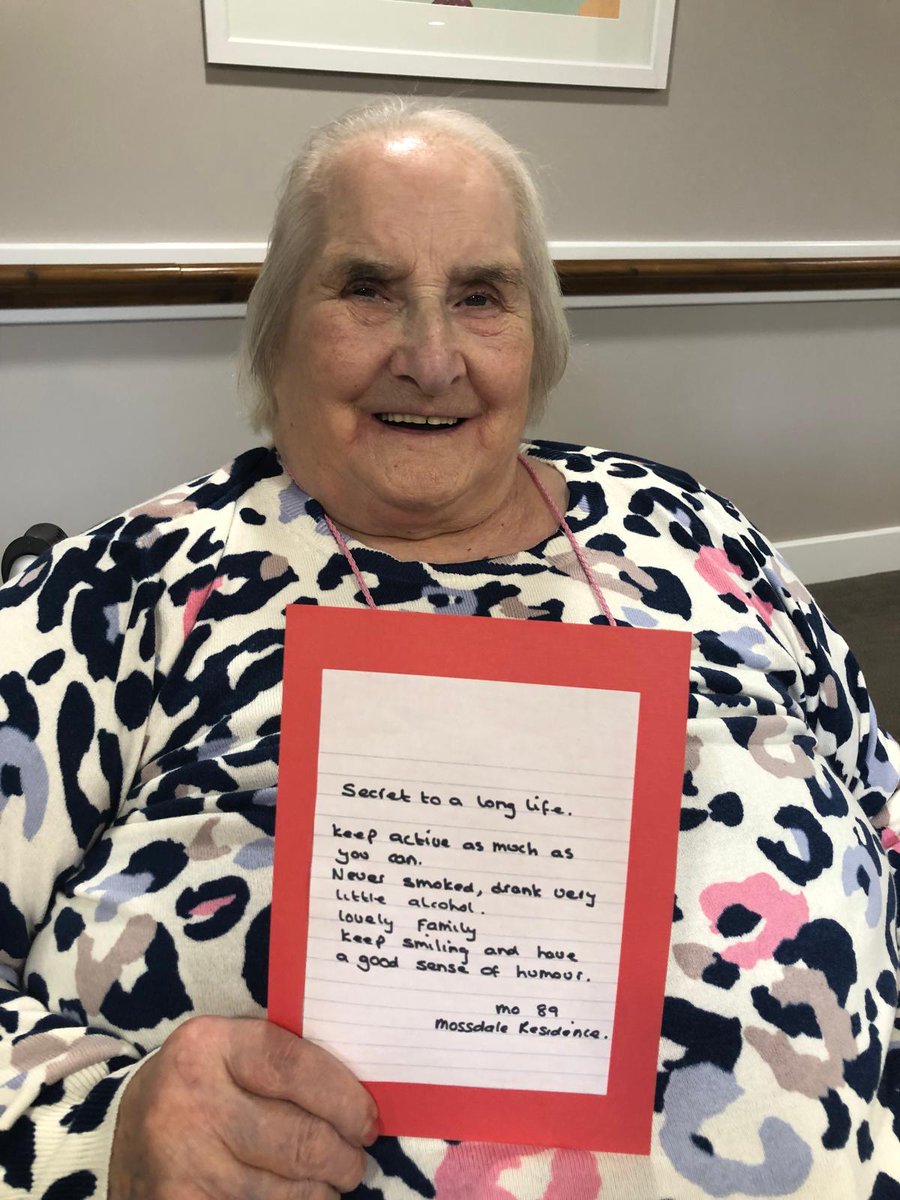 Secret to a long life.
keep active as much as
you can.
Never smoked, drank very
little alcohol.
lovely Family
keep smiling and have
a good sense of humour.
mo 89
mossdale Residence.